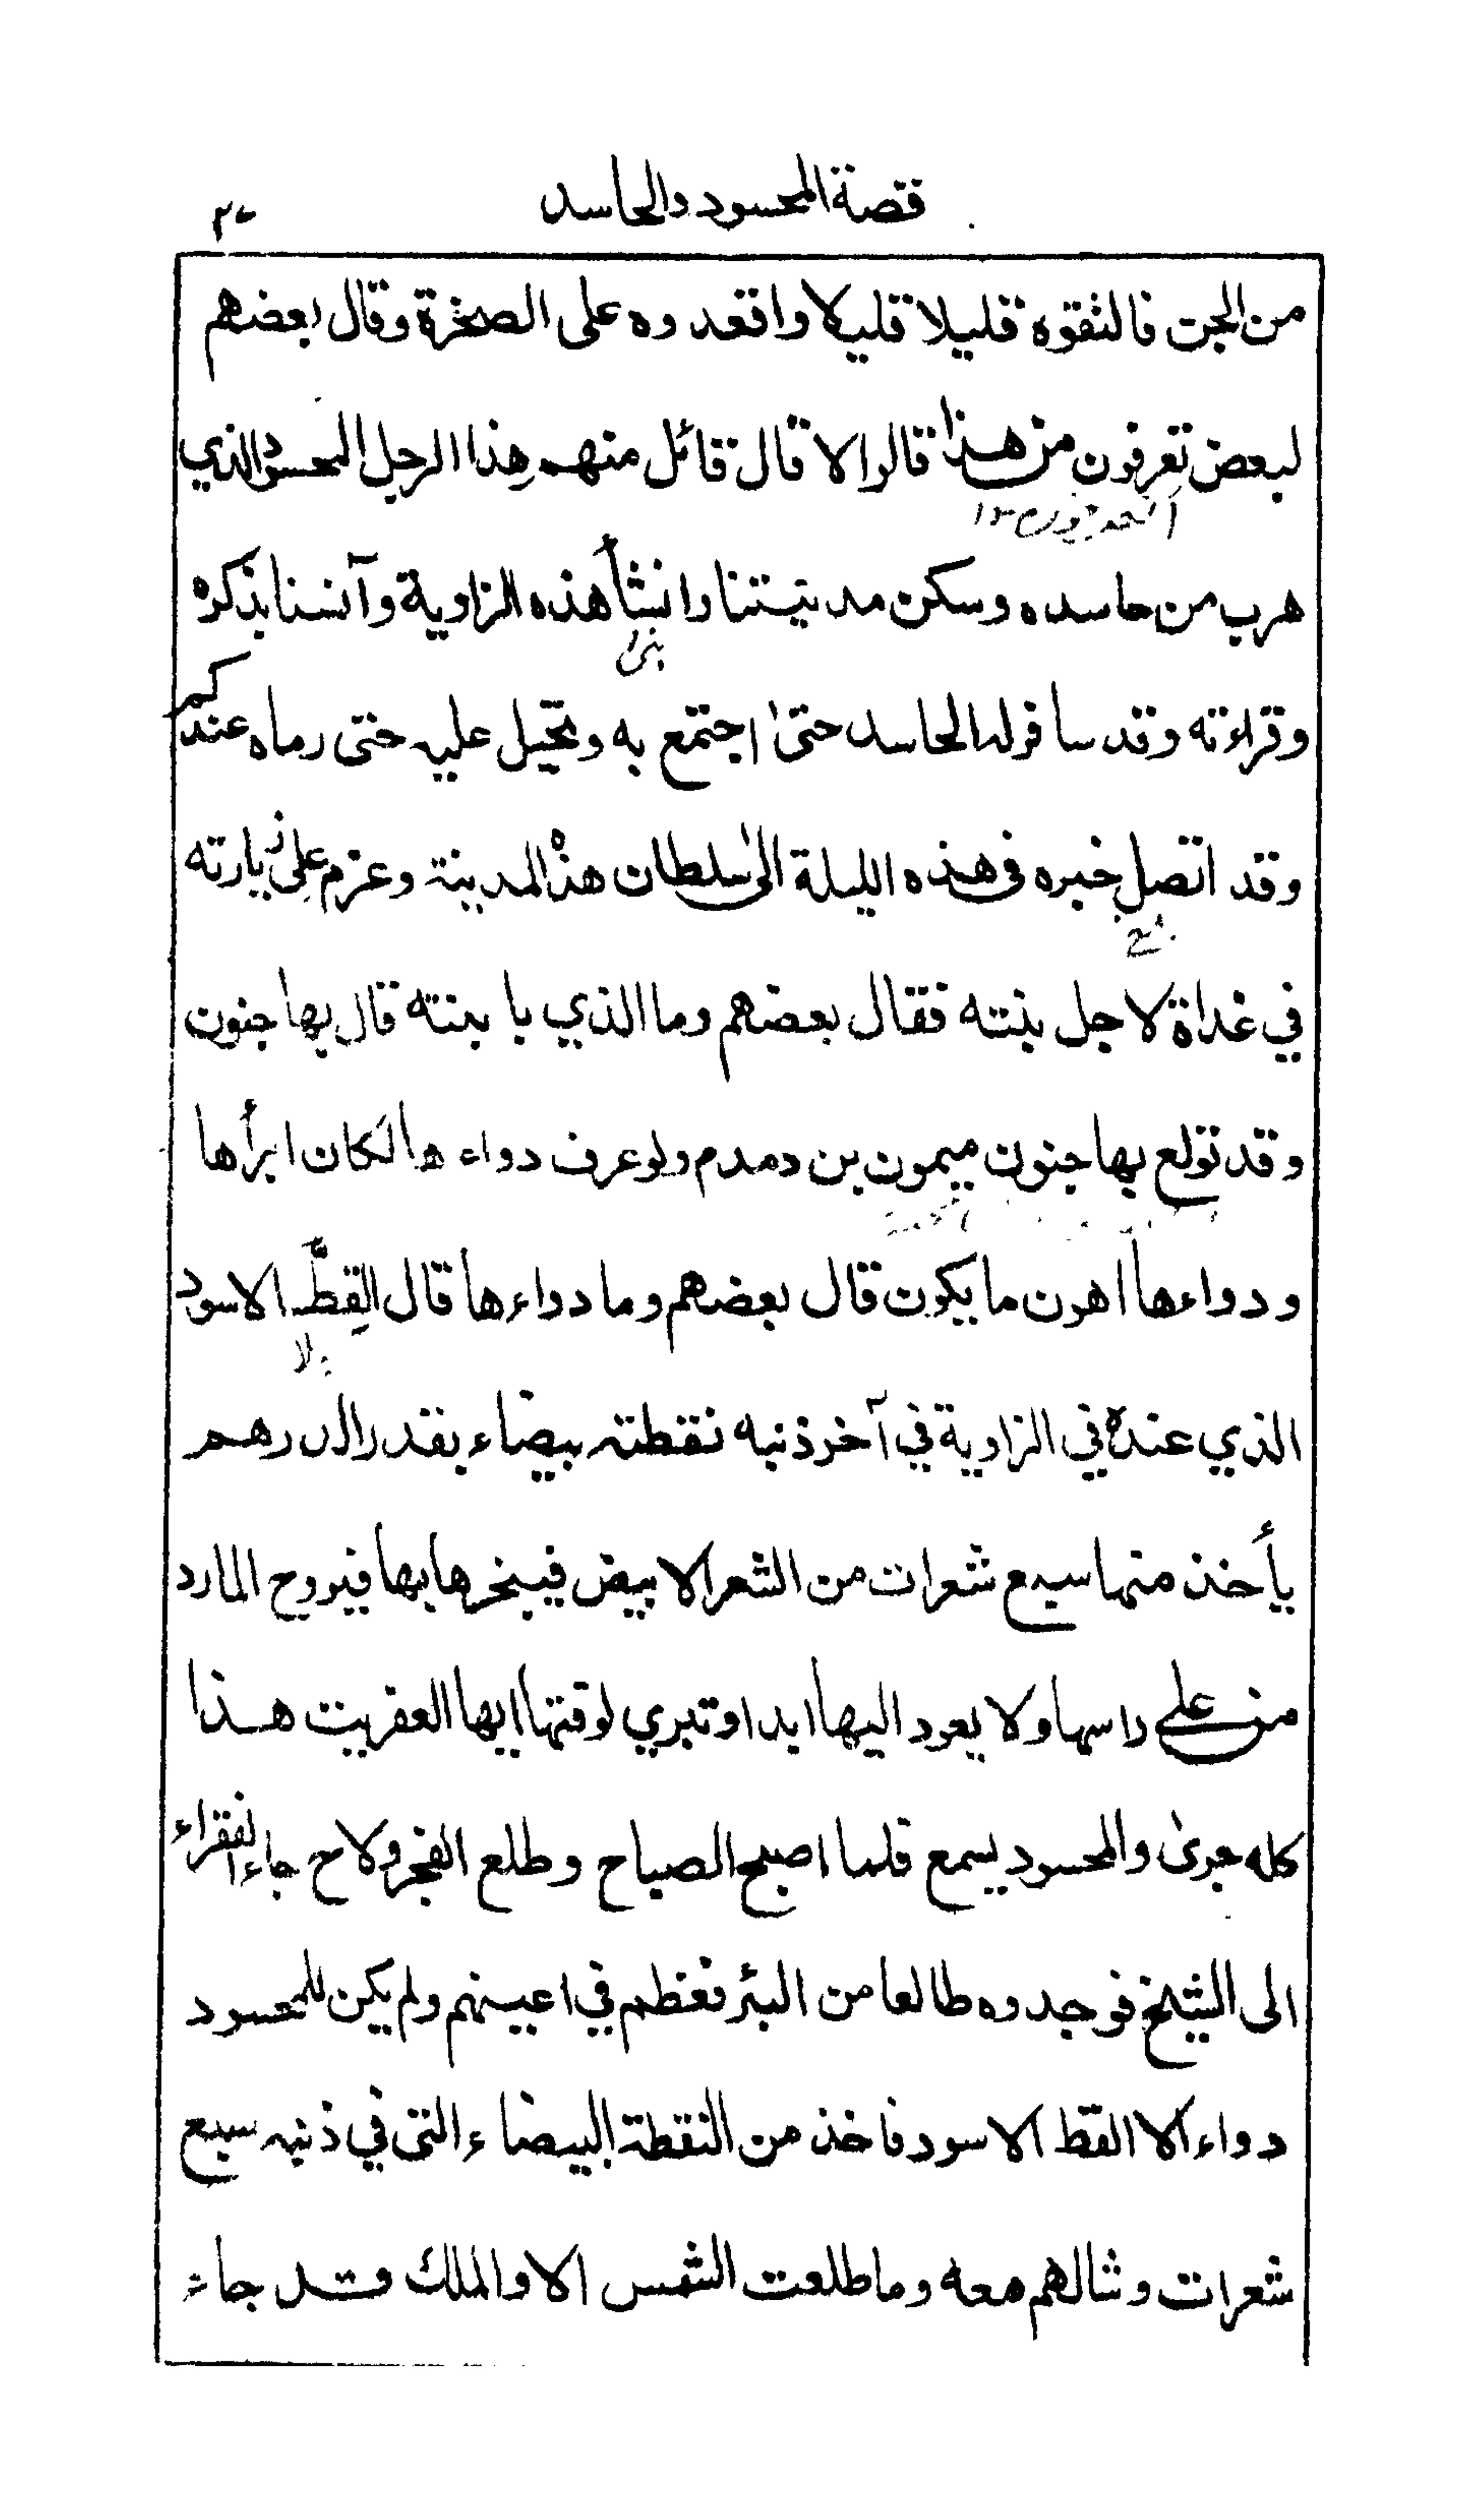 قصة المحسود والحاسد
من الجن فالتقوه قليلا قليلا واقعدوه على الصخرة وقال بعضهم
لبعض تعرفون من هذا قالوا لا قال قائل منهم هذا الرجل المحسود الذي
هرب من حاسده وسكن مدينتنا وانشأ هذه الزاوية وآنسنا بذكره
وقراءته وقد سافر له الحاسد حتى اجتمع به وتحيل عليه حتى رماه عندكم
وقد اتصل خبره في هذه الليلة الى سلطان هذه المدينة وعزم على زيارته
في غداة لاجل بنته فقال بعضهم وما الذي با بنته قال بها جنون
وقد تولع بها جنون ميمون بن دمدم ولو عرف دواءها لكان ابرأها
ودواءها اهون ما يكون قال بعضهم وما دواءها قال القِطّ الاسود
الذي عنده في الزاوية في آخر ذنبه نقطته بيضاء بقدر الدرهم
يأخذ منها سبع شعرات من الشعر الابيض فيبخرها بها فيروح المارد
من على راسها ولا يعود اليها ابدا وتبري لوقتها ايها العفريت هذا
كله جرى والمحسود يسمع فلما اصبح الصباح وطلع الفجر ولاح جاء الفقراء
الى الشيخ فوجدوه طالعا من البئر فعظم في اعينهم ولم يكن للمحسود
دواء الا القط الاسود فاخذ من النقطة البيضاء التي في ذنبه سبع
شعرات وشالهم معه وما طلعت الشمس الا والملك قد جاء